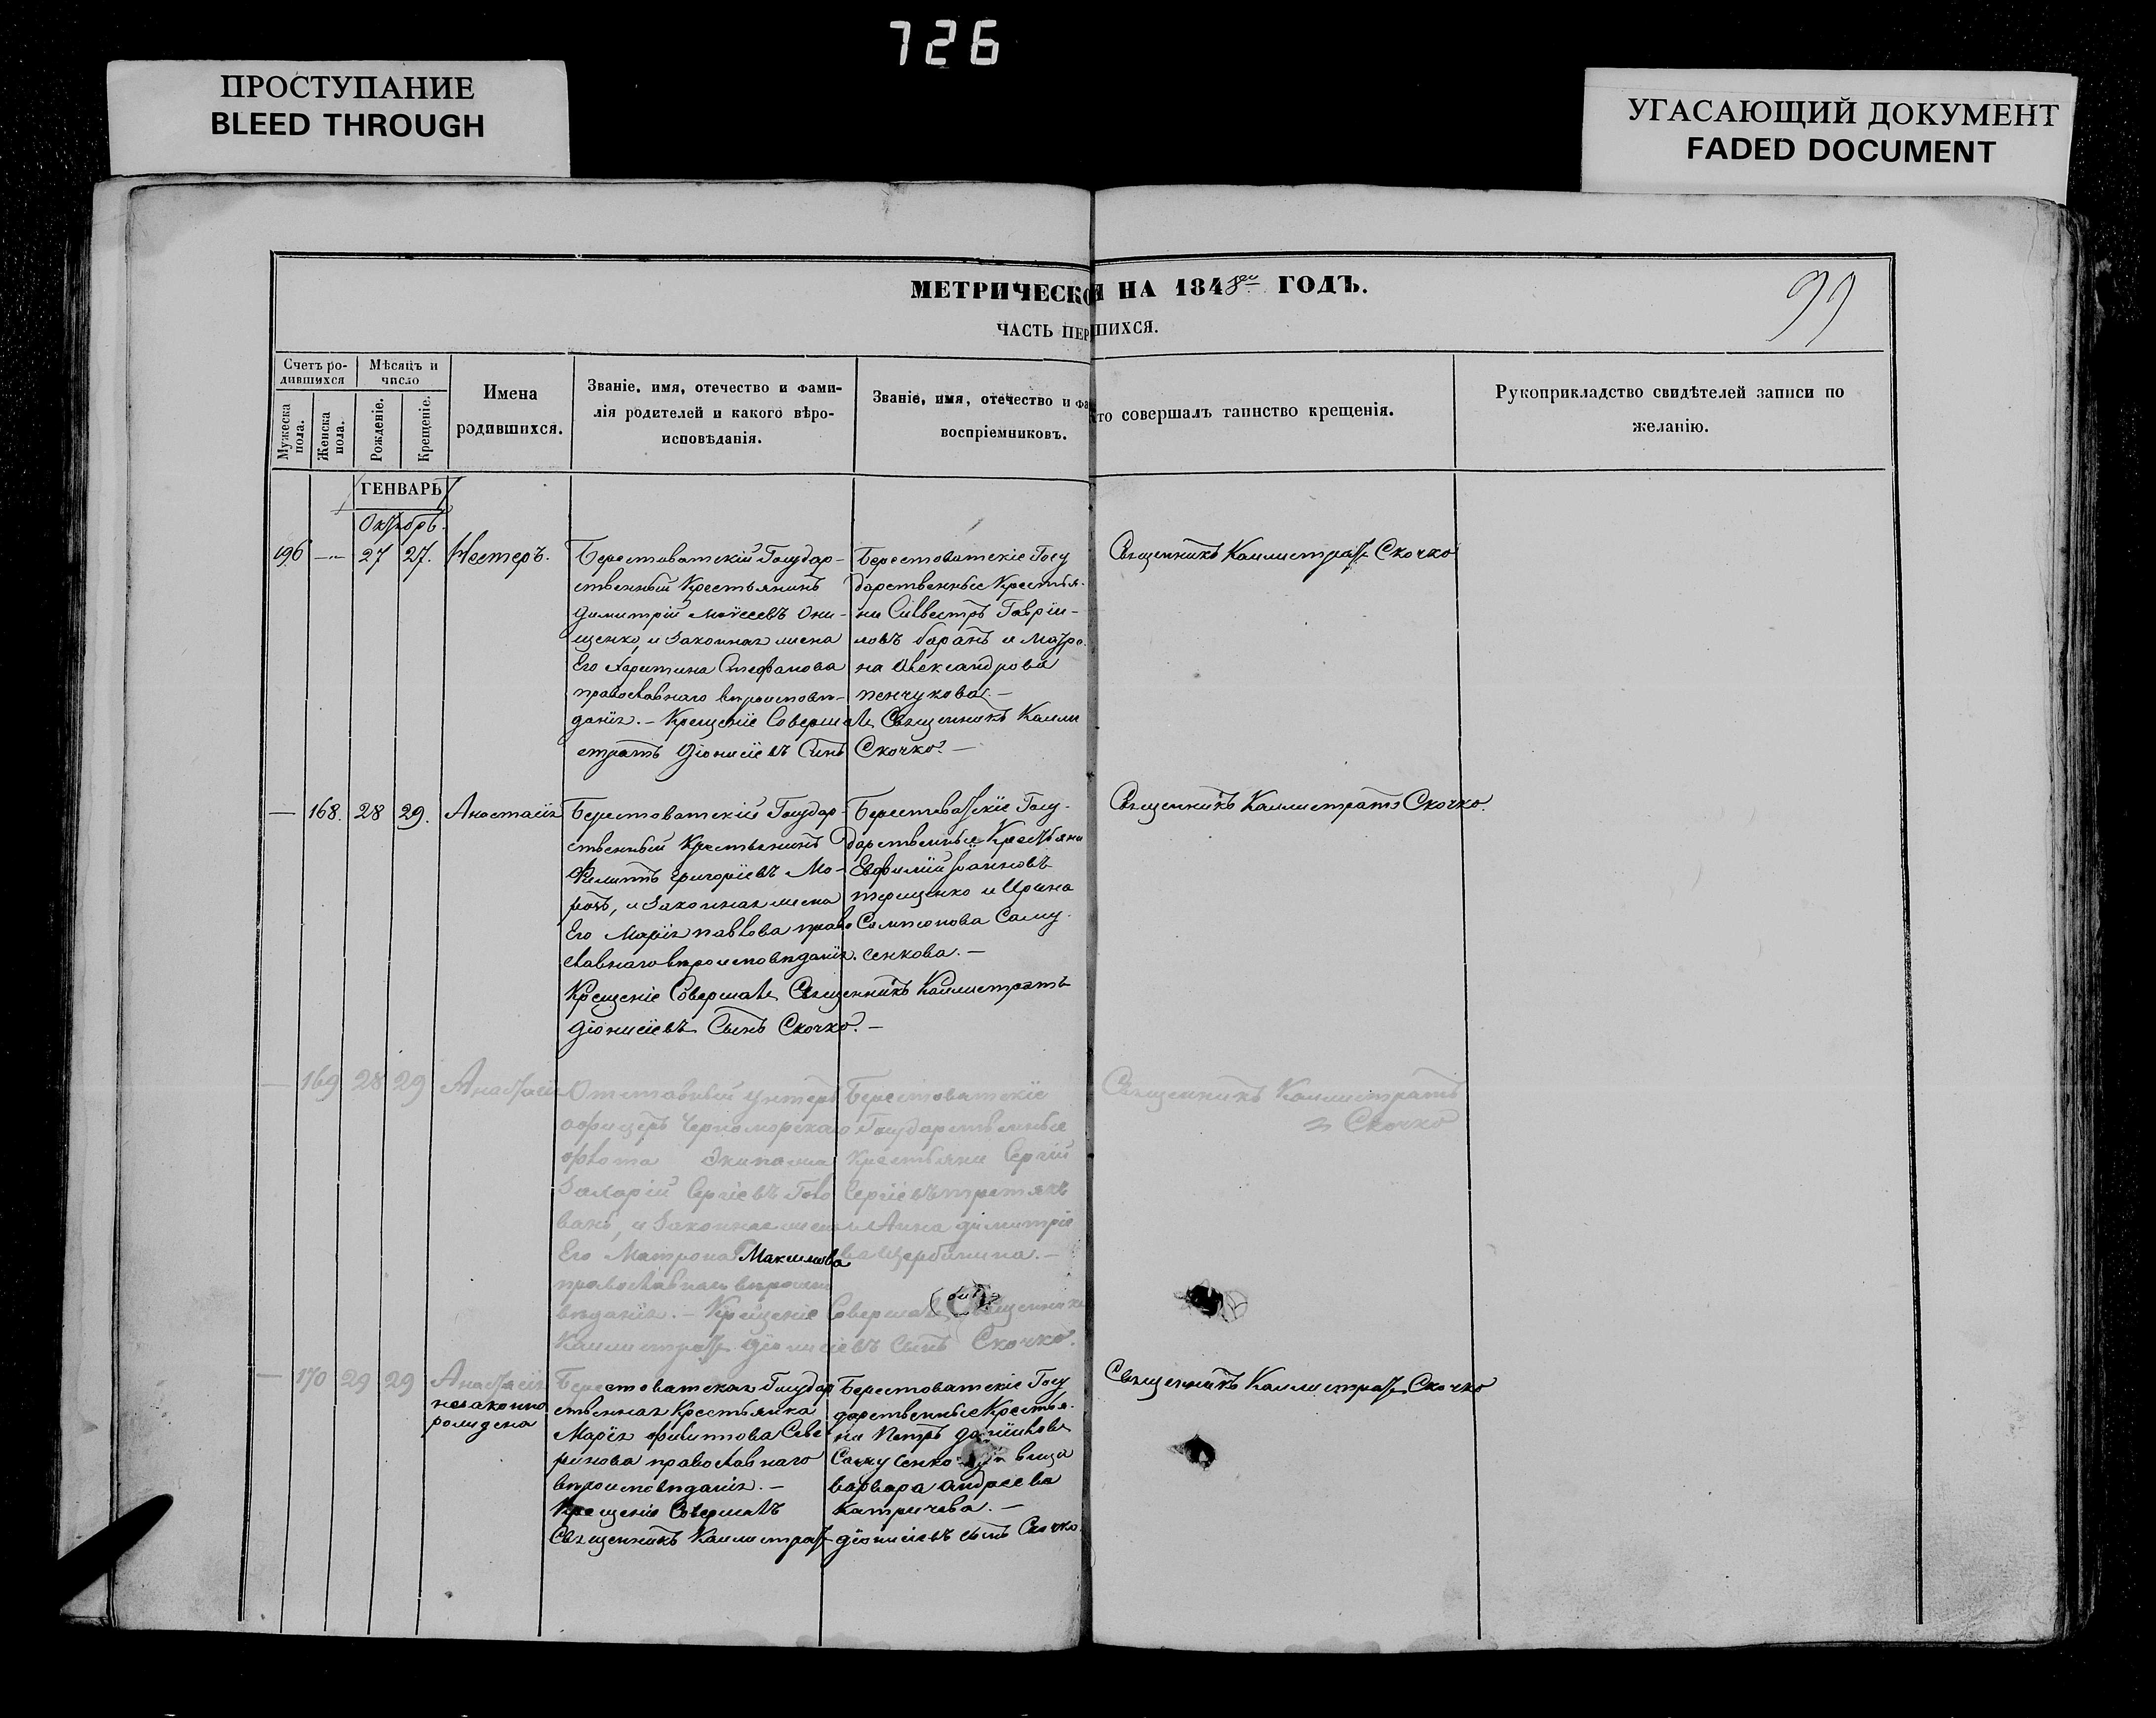 726
ПРОСТУПАНИЕ
BLEED THROUGH
УГАСАЮЩИЙ ДОКУМЕНТ
FADED DOCUMENT
МЕТРИЧЕСКО
Й НА 1848 ГОДЪ.
99
ЧАСТЬ ПЕР
ШИХСЯ.
Счетъ ро-
дившихся
Мѣсяцъ и
число
Мужеска
пола.
Женска
пола.
Рожденіе.
Крещеніе.
Имена
родившихся.
Званіе, имя, отечество и фами-
лія родителей и какого вѣро-
исповѣданія.
Званіе, имя, отечество и фа
воспріемниковъ.
то совершалъ таинство крещенія.
Рукоприкладство свидѣтелей записи по
желанію.
ГЕНВАРЬ
Октябрь.
196 — 27 27. Нестеръ.
Берестоватскій Государ-
ственный Крестьянинъ
Димитрій Моѵсеевъ Они-
щенко, и Законная жена
Его Харитина Стефанова
православнаго вѣроисповѣ-
данія. — Крещеніе Совершалъ Священникъ Калли
стратъ Діонисіевъ Сынъ Скочко. —
Берестоватскіе Госу
дарственные Крестья-
не Силвестръ Гаврiи-
ловъ Баранъ и Матро-
на Александрова
пенчукова. —
Священникъ Каллистратъ Скочко
— 168. 28 29. Анастасія
Берестоватскій Государ-
ственный Крестьянинъ
Филиппъ Григоріевъ Мо-
розъ, и Законная жена
Его Марія павлова право
славнаго вѣроисповѣданія.
Крещеніе Совершалъ Священникъ Каллистратъ
Діонисіевъ Сынъ Скочко. —
Берестоватскіе Госу-
дарственные Крестьяни
Евфимій Іоанновъ
терещенко и Ирина
Сампсонова Саму-
сенкова. —
Священникъ Каллистратъ Скочко.
— 169 28 29 Анастасія
Отставный унтеръ
офицеръ Черноморскаго
флота Экипажа
Захарій Сергіевъ Голо
вань, и Законная жена
Его Матрона Максимова
православнаго вѣроиспо
вѣданія. — Крещеніе Совершалъ Священникъ
Каллистратъ Діонисіевъ Сынъ Скочко.
Берестоватскіе
Государственные
Крестьяни Сергій
Сергіевъ третякъ
и Анна Димитріе
ва Щербинина. —
Священникъ Каллистратъ
Скочко
— 170 29 29 Анастасія
незаконно
рождена
Берестоватская Государ
ственная Крестьянка
Марія Филиппова Севе
ринова православнаго
вѣроисповѣданія. —
Крещеніе Совершалъ
Священникъ Каллистратъ Діонисіевъ сынъ Скочко.
Берестоватскіе Госу
дарственные Крестья-
ни Петръ Даніиловъ
Самусенко
варвара андреева
Катричева. —
Священникъ Каллистратъ Скочко